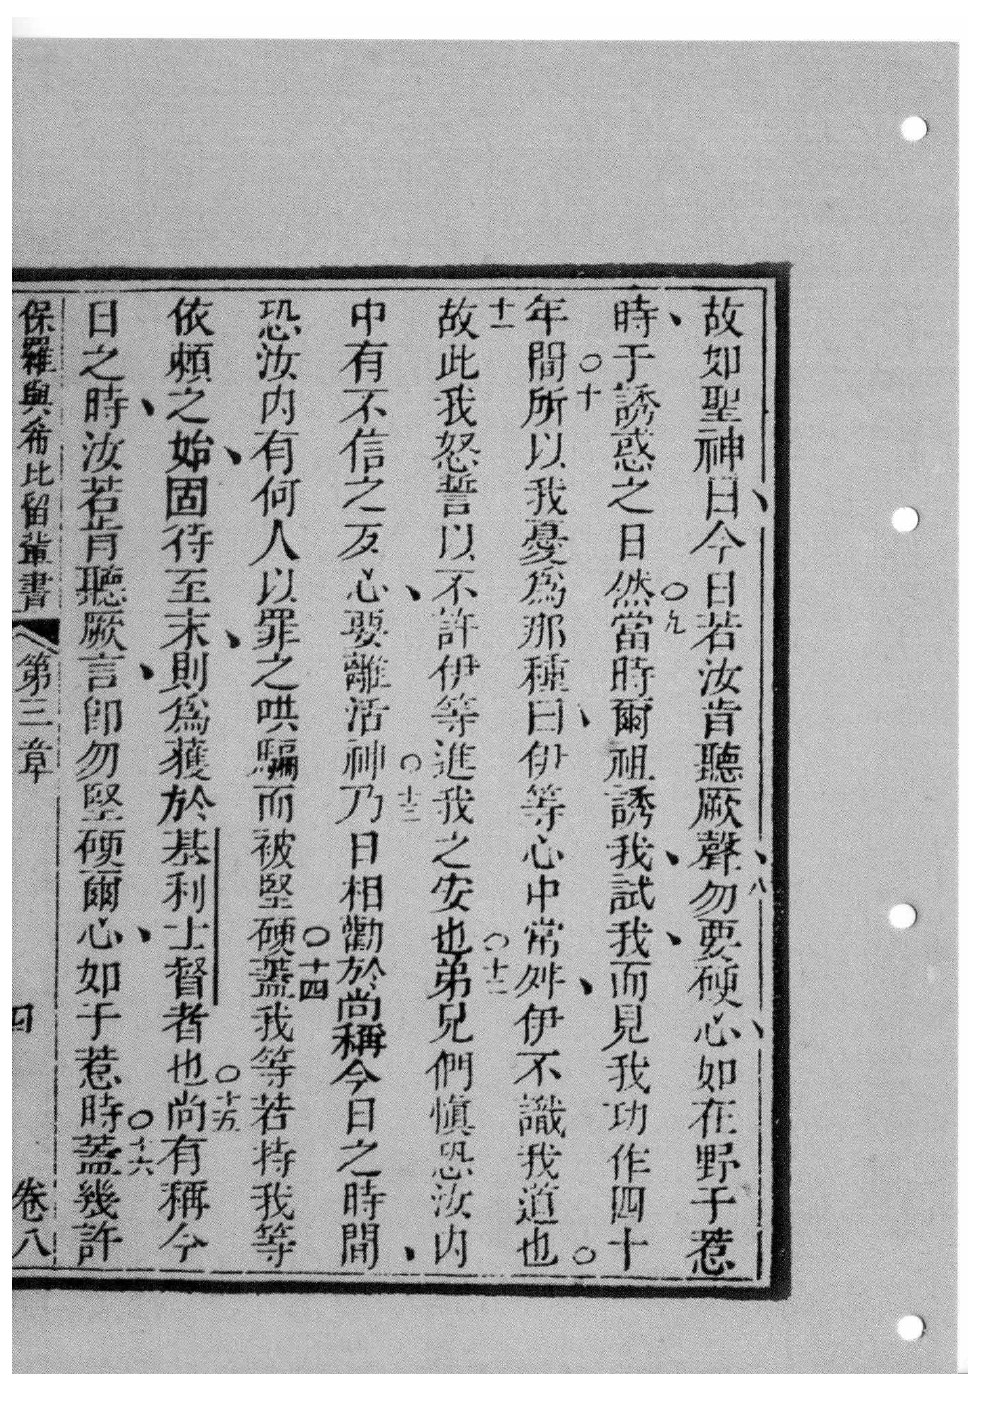 故如聖神曰今日若汝肯聽厥聲勿要硬心如在野于惹
八
時于誘惑之日然當時爾祖誘我試我而見我功作四十
○九
年間所以我憂爲那種曰伊等心中常舛伊不識我道也
○十
故此我怒誓以不許伊等進我之安也弟兄們愼恐汝內
十一
○
○十二
中有不信之歹心要離活神乃日相勸於尚稱今日之時間
○十三
恐汝內有何人以罪之哄騙而被堅硬蓋我等若持我等
○十四
依頼之始固待至末則爲獲於基利士督者也尚有稱今
○十五
日之時汝若肯聽厥言卽勿堅硬爾心如于惹時蓋幾許
○十六
保羅與希比留輩書 第三章 四 卷八